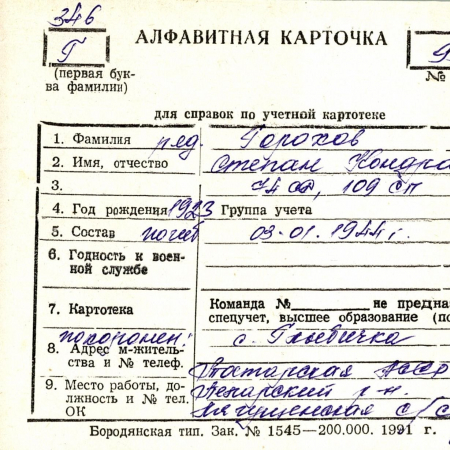 346
Г
АЛФАВИТНАЯ КАРТОЧКА
(первая бук-
ва фамилии)
№
для справок по учетной картотеке
1. Фамилия ряд. Горохов
2. Имя, отчество Степан Кондра
3. 74 сд, 109 сп
4. Год рождения 1923 Группа учета
5. Состав погиб 03.01.1944 г.
6. Годность к воен-
ной службе
7. Картотека
Команда № не предна
спецучет, высшее образование (по
похоронен: с.
8. Адрес м-жительс-
тва и № телеф. Татарская АССР
9. Место работы, до-
лжность и № тел.
ОК
р-н.
с/с
Бородянская тип. Зак. № 1545—200.000. 1991 г.